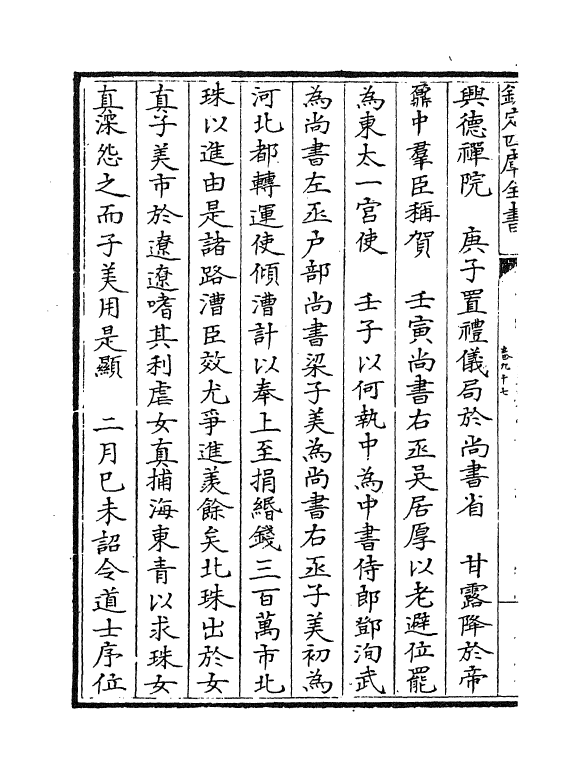 欽定四庫全書
卷九十七
興德禪院　庚子置禮儀局於尚書省　甘露降於帝
鼐中羣臣稱賀　壬寅尚書右丞吳居厚以老避位罷
為東太一宮使　壬子以何執中為中書侍郎鄧洵武
為尚書左丞户部尚書梁子美為尚書右丞子美初為
河北都轉運使傾漕計以奉上至捐緡錢三百萬市北
珠以進由是諸路漕臣效尤爭進羨餘矣北珠出於女
真子美市於遼遼嗜其利虐女真捕海東青以求珠女
真深怨之而子美用是顯　二月已未詔令道士序位